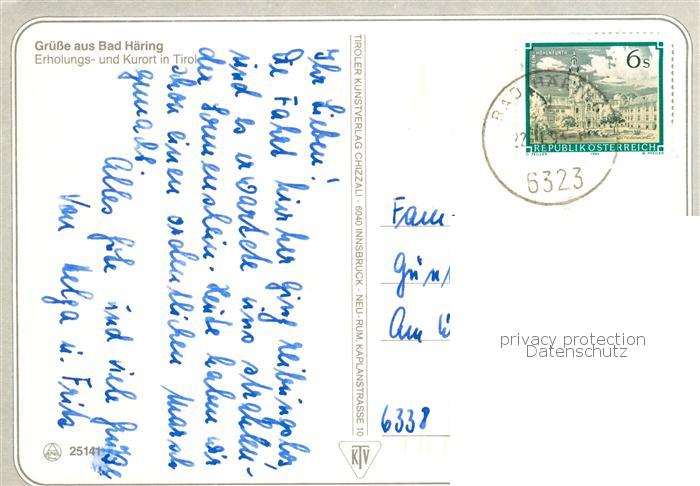 Grüße aus Bad Häring
Erholungs- und Kurort in Tirol
Ihr Lieben!
Die Fahrt hier her ging reibungslos
und es erwartete uns strahlen-
der Sonnenschein. Heute haben wir
schon einen ordentlichen Marsch
gemacht.
Alles Gute und viele Grüße
Von Helga u. Fritz
25141
TIROLER KUNSTVERLAG CHIZZALI - 6040 INNSBRUCK - NEU-RUM, KAPLANSTRASSE 10
KTV
6 S
REPUBLIK ÖSTERREICH
BAD HÄRING
6323
Fam.
Gün
Am
6338
privacy protection
Datenschutz